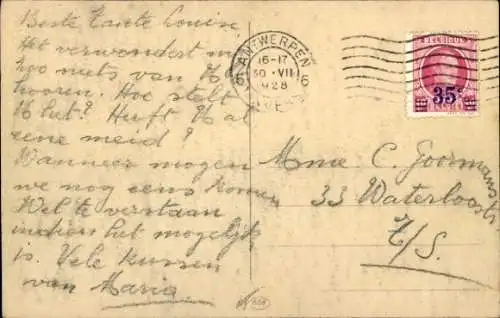 Beste Tante Louise
Het verwondert mij
zoo niets van U te
hooren. Hoe stelt
U het? Heeft U al
eene meid?
Wanneer mogen
we nog eens komen
Wel te verstaan
indien het mogelijk
is. Vele kussen
van Maria
ANTWERPEN
16-17
30 VII
1928
6 6
ANVERS
35c
Mme C. Goormans
33 Waterloostr
E/S.